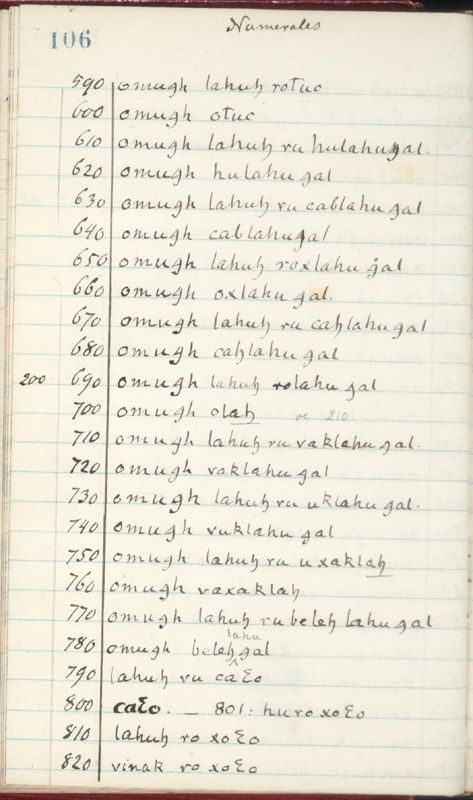 Numerales
106
590 omugh lahuḩ rotuc
600 omugh otuc
610 omugh lahuḩ ru hulahugal.
620 omugh hulahu gal
630 omugh lahuḩ ru cablahu gal
640 omugh cablahugal
650 omugh lahuḩ roxlahu gal
660 omugh oxlahu gal.
670 omugh lahuḩ ru caḩlahu gal
680 omugh caḩlahu gal
200 690 omugh lahuḩ rolahu gal
700 omugh olaḩ 210
710 omugh lahuḩ ru vaklahu gal.
720 omugh vaklahu gal
730 omugh lahuḩ ru uklahu gal.
740 omugh vuklahu gal
750 omugh lahuḩ ru uxaklaḩ
760 omugh vaxaklaḩ
770 omugh lahuḩ ru beleḩ lahu gal
780 omugh beleḩ lahu gal
790 lahuḩ ru caƐo
800 caƐo. — 801: huro xoƐo
810 lahuḩ ro xoƐo
820 vinak ro xoƐo